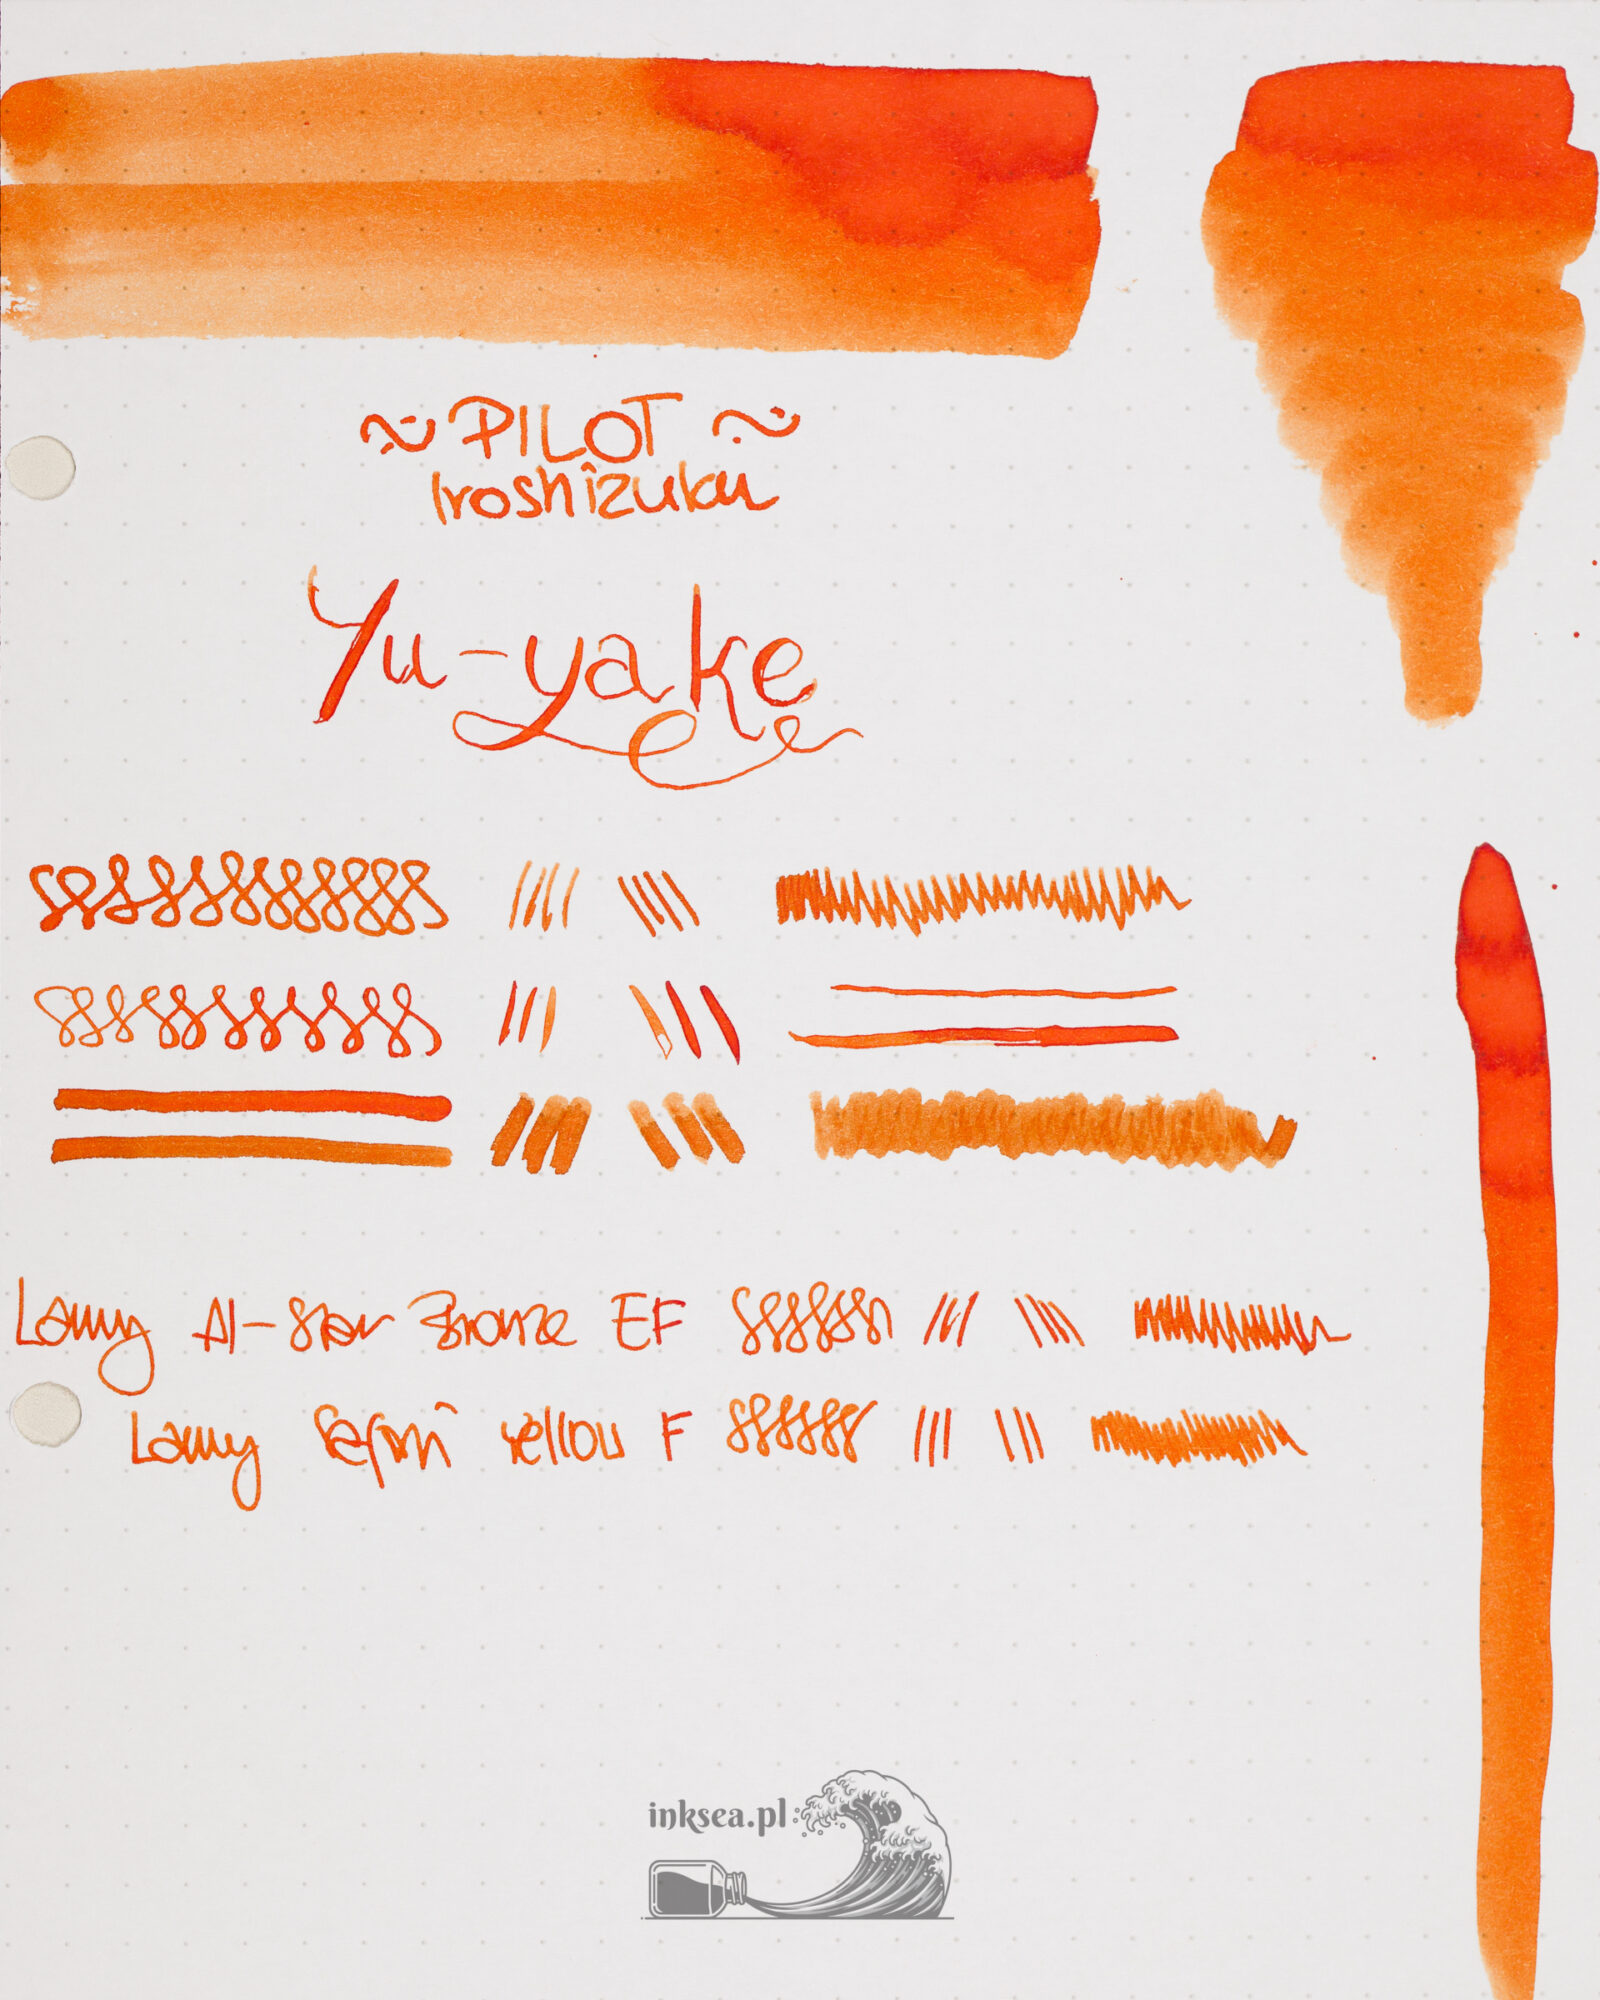 ~ PILOT ~
Iroshizuku
Yu-yake
Lamy Al-Star Bronze EF
Lamy Safari yellow F
inksea.pl